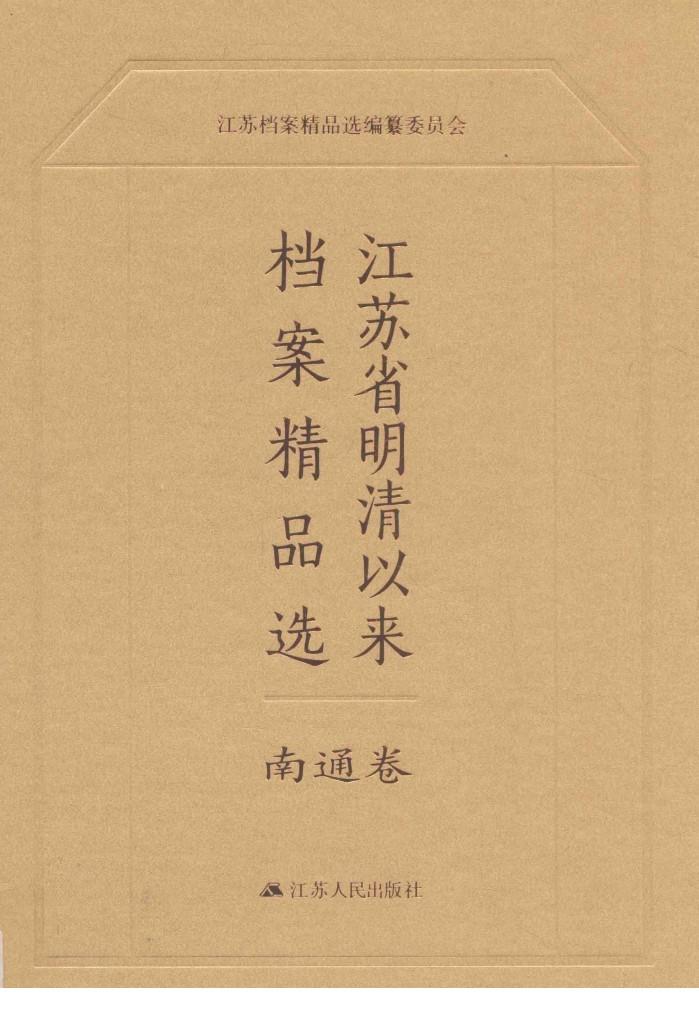 江苏档案精品选编纂委员会
江苏省明清以来
档案精品选
南通卷
江苏人民出版社